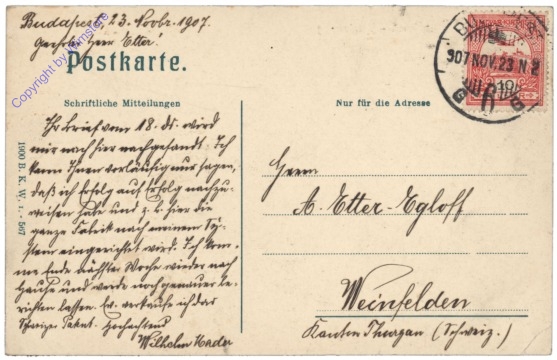 Budapest, 23. Novbr. 1907.
Geehrter Herr Etter!
Copyright by Hamstore
Postkarte.
Schriftliche Mitteilungen
Nur für die Adresse
Ihr Brief vom 18. ds. wird
mir nach hier nachgesandt. Ich
kann Ihnen vorläufig nur sagen,
daß ich Erfolg auf Erfolg nachzu-
weisen habe und z. B. hier die
ganze Fabrik nach meinem Sy-
stem eingerichtet wird. Ich kom-
me Ende nächster Woche wieder nach
Hause und werde noch genauer be-
richten lassen. verkaufe ich das
Schweizer Patent. Hochachtend
Wilhelm Mader
1900 B. K. W. I. - 567
907 NOV. 23 N 2
Herrn
A. Etter-Egloff
Weinfelden
Kanton Thurgau (Schweiz.)